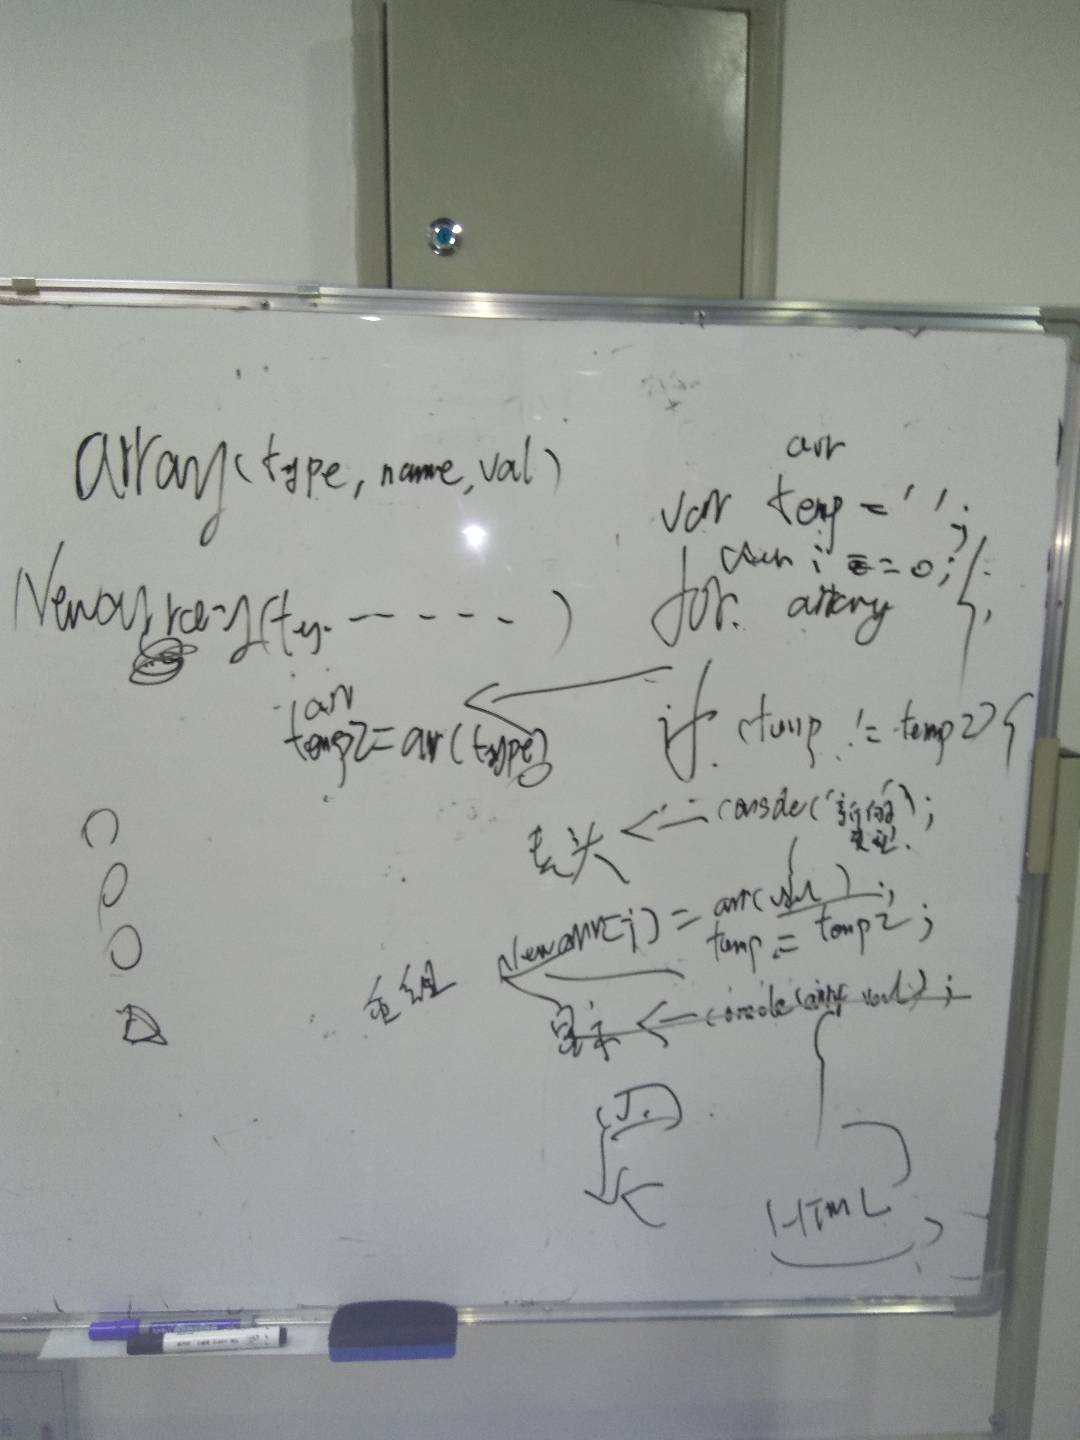 array(type, name, val)
Newarray(ty. - - - - - )
arr
temp2=arr(type)
重组
arr
var temp = '';
var i = 0;
for. array {
if (temp != temp2) {
表头 <— console('新的类型');
Newarr[i] = arr(val);
temp = temp2;
显示 <— console(arr val);
HTML